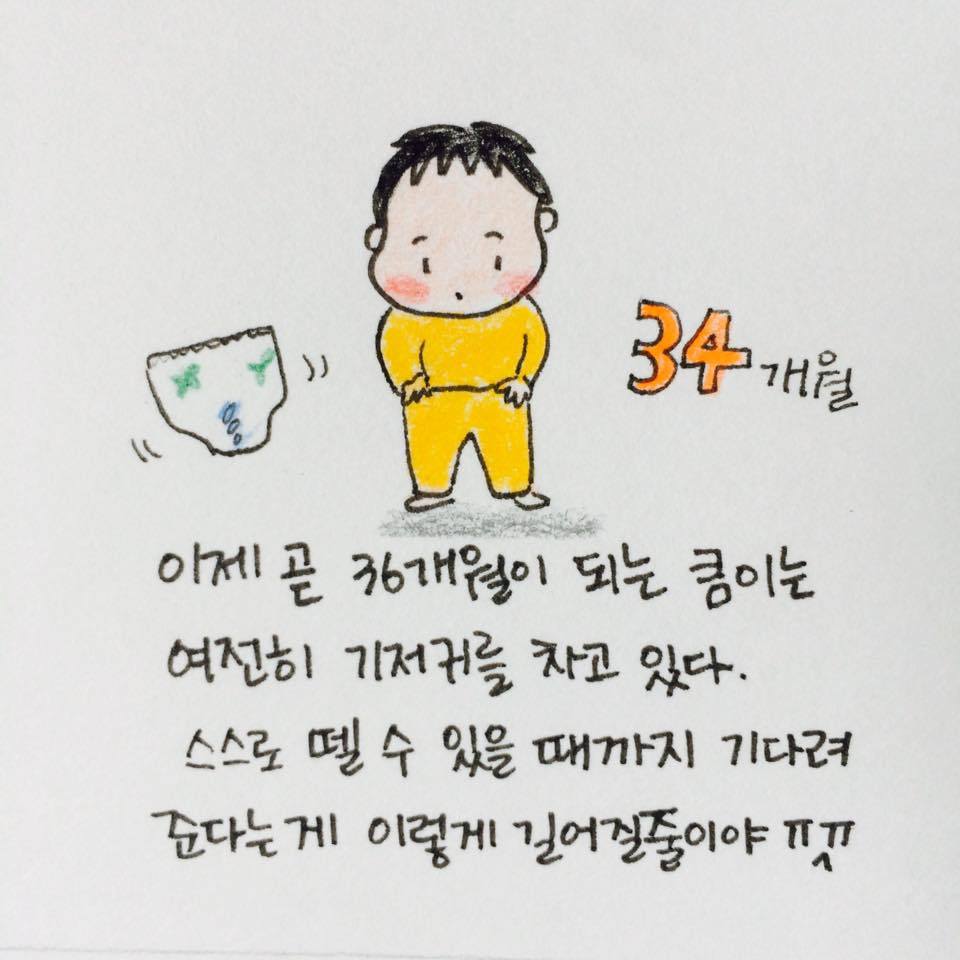 34개월
이제 곧 36개월이 되는 큼이는
여전히 기저귀를 차고 있다.
스스로 뗄 수 있을 때까지 기다려
준다는게 이렇게 길어질줄이야 ㅠㅅㅠ